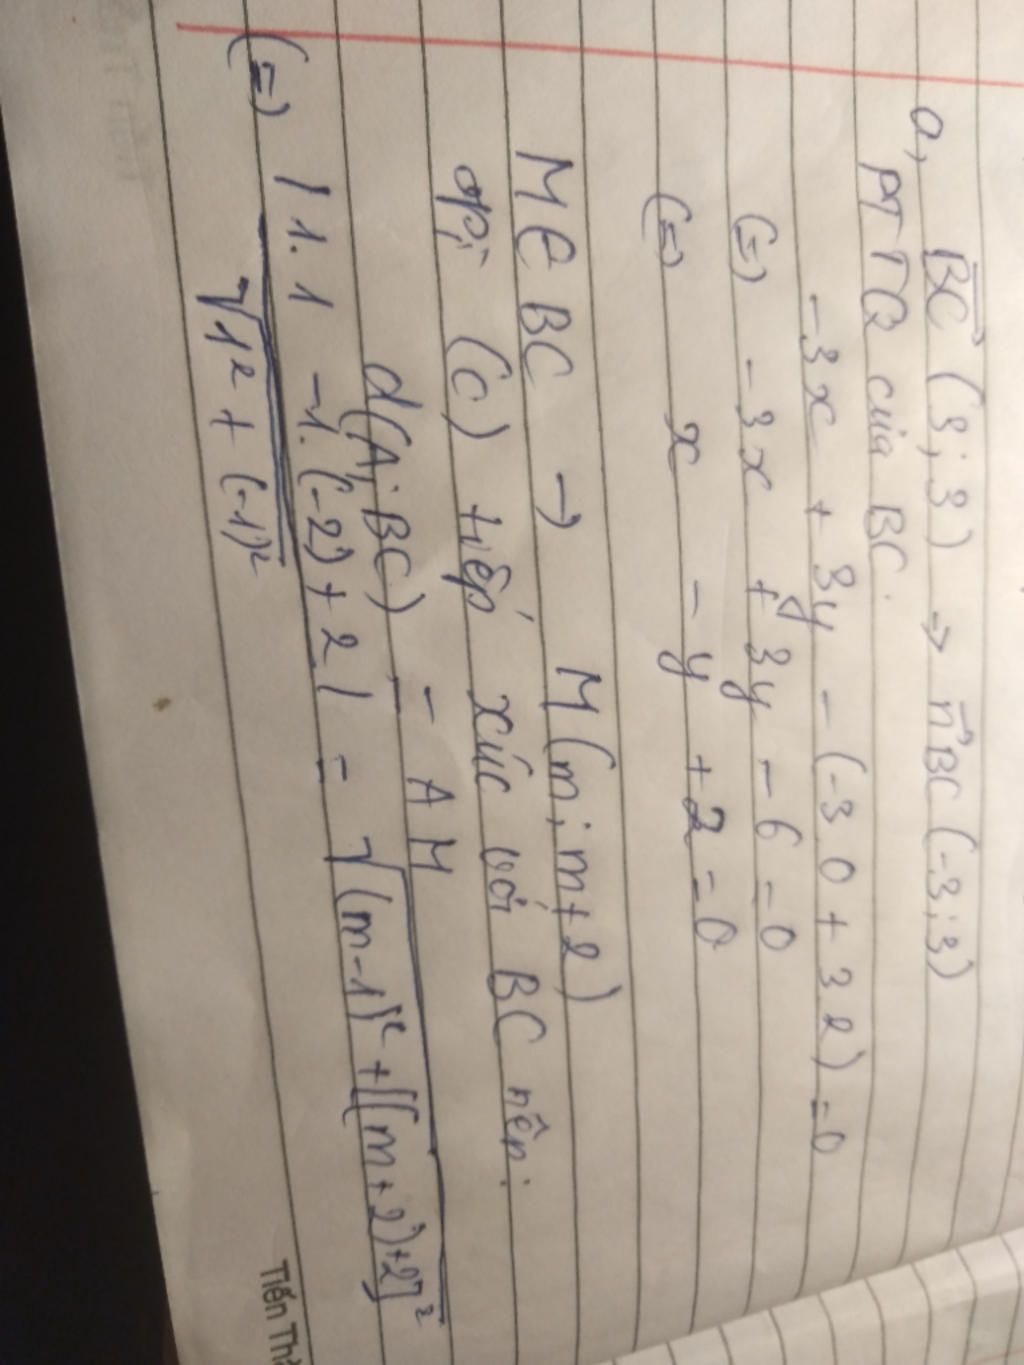 a, BC→ (3; 3) → n→BC (-3; 3)
PTTQ của BC:
-3x + 3y - (-3.0 + 3.2) = 0
(=) -3x + 3y - 6 = 0
(=) x - y + 2 = 0
M ∈ BC → M(m; m+2)
(C) tiếp xúc với BC nên:
d(A; BC) = AM
(=) |1.1 -1.(-2) + 2| / √1² + (-1)² = √(m-1)² + [(m+2)+2]²
Tiến Th